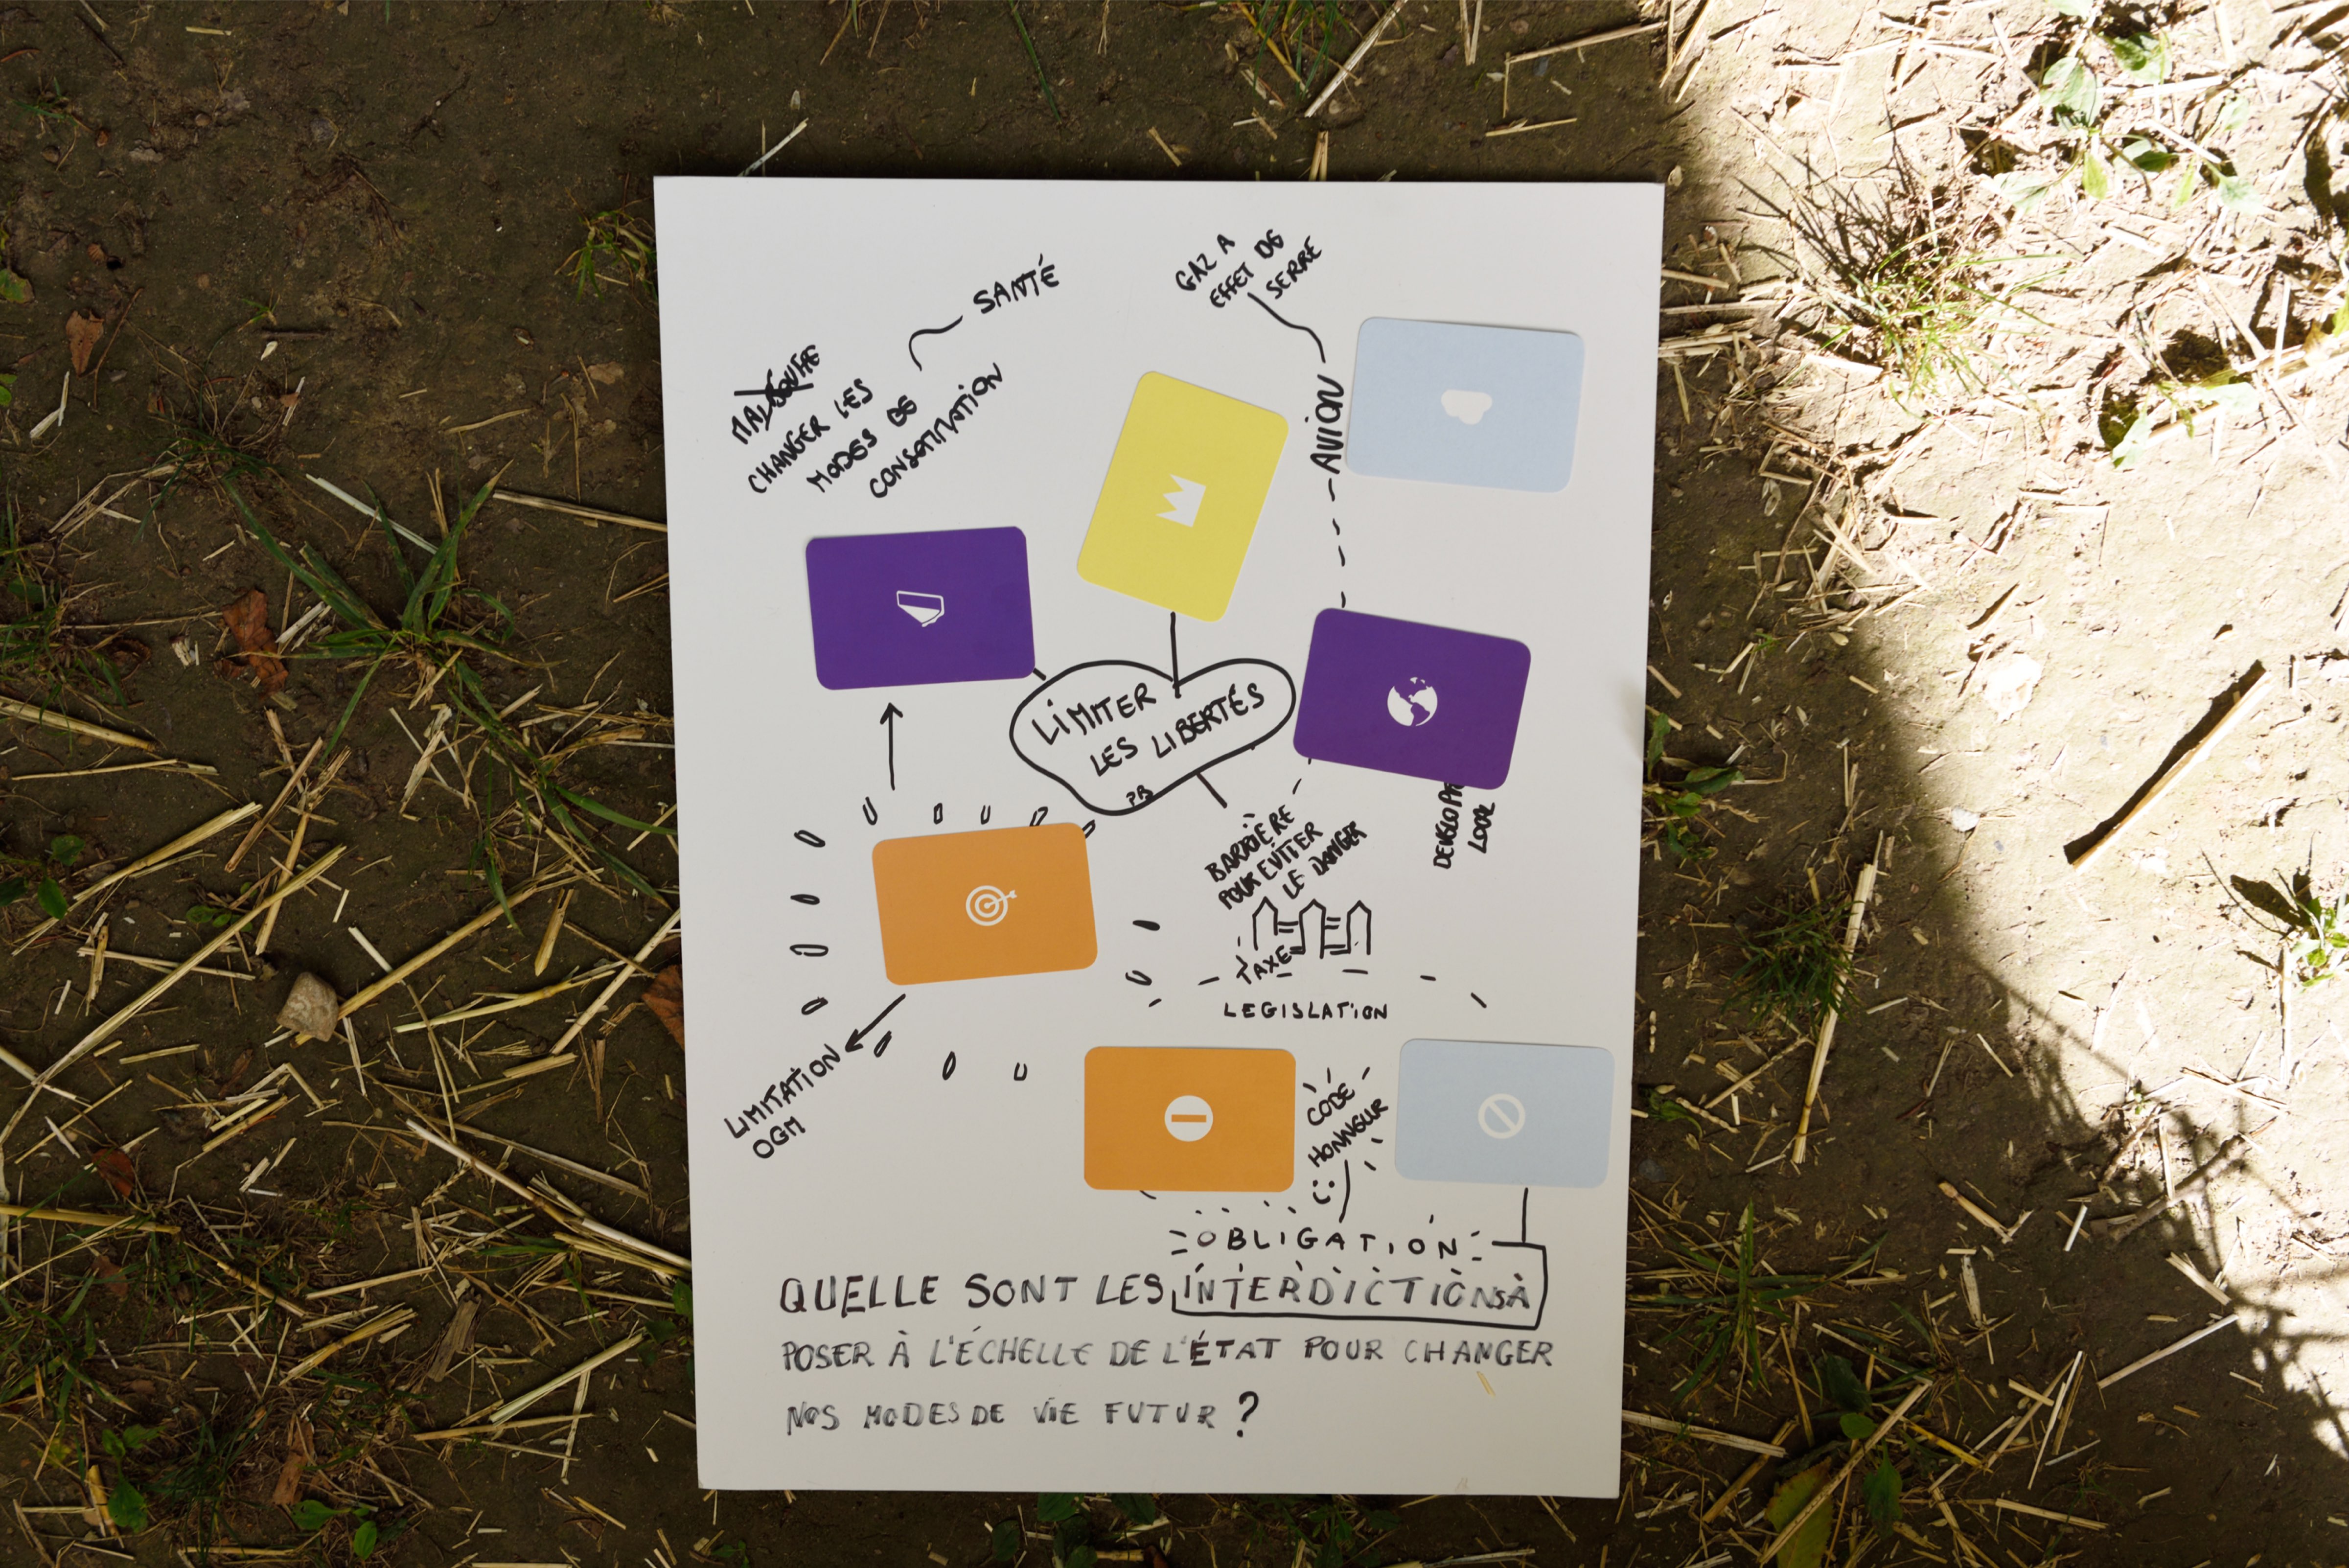 SANTÉ
GAZ A
EFFET DE
SERRE
CHANGER LES
MODES DE
CONSOMMATION
AVION
LIMITER
LES LIBERTÉS
PB
BARRIÈRE
POUR EVITER
LE DANGER
DEVELOPPE
LOCAL
TAXE
LEGISLATION
LIMITATION
OGM
CODE
HONNEUR
OBLIGATION
QUELLE SONT LES INTERDICTIONS À
POSER À L'ÉCHELLE DE L'ÉTAT POUR CHANGER
NOS MODES DE VIE FUTUR ?